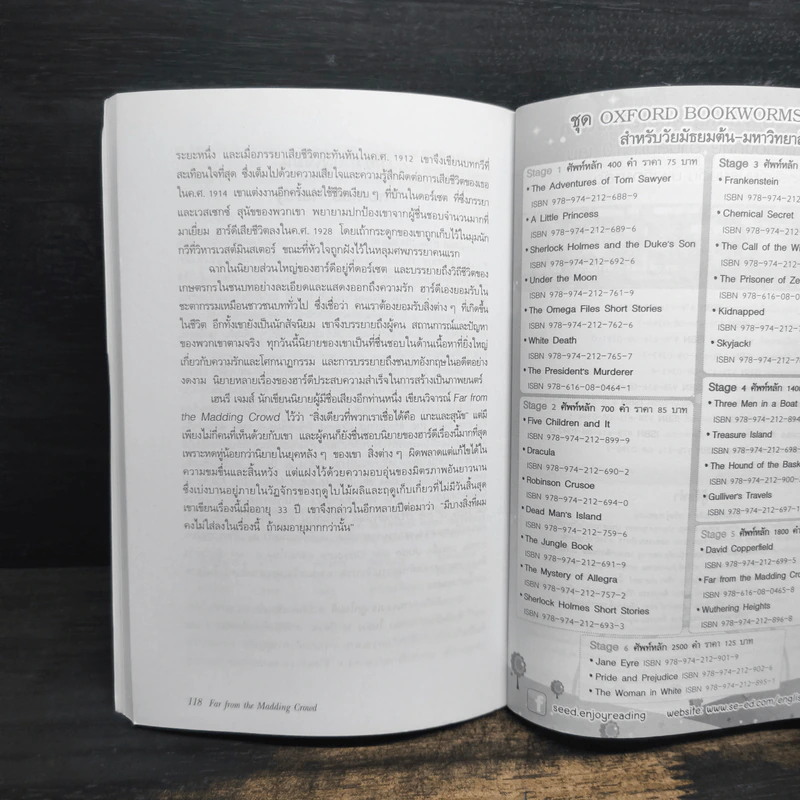 ระยะหนึ่ง และเมื่อภรรยาเสียชีวิตกะทันหันในค.ศ. 1912 เขาจึงเขียนบทกวีที่
สะเทือนใจที่สุด ซึ่งเต็มไปด้วยความเสียใจและความรู้สึกผิดต่อการเสียชีวิตของเธอ
ในค.ศ. 1914 เขาแต่งงานอีกครั้งและใช้ชีวิตเงียบ ๆ ที่บ้านในดอร์เซต ที่ซึ่งภรรยา
และเวสเซกซ์ สุนัขของพวกเขา พยายามปกป้องเขาจากผู้ชื่นชอบจำนวนมากที่
มาเยี่ยม ฮาร์ดีเสียชีวิตลงในค.ศ. 1928 โดยเถ้ากระดูกของเขาถูกเก็บไว้ในมุมนัก
กวีที่วิหารเวสต์มินสเตอร์ ขณะที่หัวใจถูกฝังไว้ในหลุมศพภรรยาคนแรก
ฉากในนิยายส่วนใหญ่ของฮาร์ดีอยู่ที่ดอร์เซต และบรรยายถึงวิถีชีวิตของ
เกษตรกรในชนบทอย่างละเอียดและแสดงออกถึงความรัก ฮาร์ดีเองยอมรับใน
ชะตากรรมเหมือนชาวชนบททั่วไป ซึ่งเชื่อว่า คนเราต้องยอมรับสิ่งต่าง ๆ ที่เกิดขึ้น
ในชีวิต อีกทั้งเขายังเป็นนักสัจนิยม เขาจึงบรรยายถึงผู้คน สถานการณ์และปัญหา
ของพวกเขาตามจริง ทุกวันนี้นิยายของเขาเป็นที่ชื่นชอบในด้านเนื้อหาที่ยิ่งใหญ่
เกี่ยวกับความรักและโศกนาฏกรรม และการบรรยายถึงชนบทอังกฤษในอดีตอย่าง
งดงาม นิยายหลายเรื่องของฮาร์ดีประสบความสำเร็จในการสร้างเป็นภาพยนตร์
เฮนรี เจมส์ นักเขียนนิยายผู้มีชื่อเสียงอีกท่านหนึ่ง เขียนวิจารณ์ Far from
the Madding Crowd ไว้ว่า “สิ่งเดียวที่พวกเราเชื่อได้คือ แกะและสุนัข” แต่มี
เพียงไม่กี่คนที่เห็นด้วยกับเขา และผู้คนก็ยังชื่นชอบนิยายของฮาร์ดีเรื่องนี้มากที่สุด
เพราะหดหู่น้อยกว่านิยายในยุคหลัง ๆ ของเขา สิ่งต่าง ๆ ผิดพลาดแต่แก้ไขได้ใน
ความขมขื่นและสิ้นหวัง แต่แฝงไว้ด้วยความอบอุ่นของมิตรภาพอันยาวนาน
ซึ่งเบ่งบานอยู่ภายในวัฏจักรของฤดูใบไม้ผลิและฤดูเก็บเกี่ยวที่ไม่มีวันสิ้นสุด
เขาเขียนเรื่องนี้เมื่ออายุ 33 ปี เขาจึงกล่าวในอีกหลายปีต่อมาว่า “มีบางสิ่งที่ผม
คงไม่ใส่ลงในเรื่องนี้ ถ้าผมอายุมากกว่านั้น”
118 Far from the Madding Crowd
ชุด OXFORD BOOKWORMS
สำหรับวัยมัธยมต้น-มหาวิทยาล
Stage 1 ศัพท์หลัก 400 คำ ราคา 75 บาท
• The Adventures of Tom Sawyer
ISBN 978-974-212-688-9
• A Little Princess
ISBN 978-974-212-689-6
• Sherlock Holmes and the Duke's Son
ISBN 978-974-212-692-6
• Under the Moon
ISBN 978-974-212-761-9
• The Omega Files Short Stories
ISBN 978-974-212-762-6
• White Death
ISBN 978-974-212-765-7
• The President's Murderer
ISBN 978-616-08-0464-1
Stage 2 ศัพท์หลัก 700 คำ ราคา 85 บาท
• Five Children and It
ISBN 978-974-212-899-9
• Dracula
ISBN 978-974-212-690-2
• Robinson Crusoe
ISBN 978-974-212-694-0
• Dead Man's Island
ISBN 978-974-212-759-6
• The Jungle Book
ISBN 978-974-212-691-9
• The Mystery of Allegra
ISBN 978-974-212-757-2
• Sherlock Holmes Short Stories
ISBN 978-974-212-693-3
Stage 3 ศัพท์หลัก
• Frankenstein
ISBN 978-974-212-
• Chemical Secret
ISBN 978-974-212-
• The Call of the W
ISBN 978-974-212-
• The Prisoner of Ze
ISBN 978-616-08-0
• Kidnapped
ISBN 978-974-212-
• Skyjack!
ISBN 978-974-212-7
Stage 4 ศัพท์หลัก 140
• Three Men in a Boat
ISBN 978-974-212-894
• Treasure Island
ISBN 978-974-212-698-
• The Hound of the Bask
ISBN 978-974-212-900-
• Gulliver's Travels
ISBN 978-974-212-697-1
Stage 5 ศัพท์หลัก 1800 คำ
• David Copperfield
ISBN 978-974-212-699-5
• Far from the Madding Cro
ISBN 978-616-08-0465-8
• Wuthering Heights
ISBN 978-974-212-896-8
Stage 6 ศัพท์หลัก 2500 คำ ราคา 125 บาท
• Jane Eyre ISBN 978-974-212-901-9
• Pride and Prejudice ISBN 978-974-212-902-6
• The Woman in White ISBN 978-974-212-895-1
f seed.enjoyreading
website: www.se-ed.com/englis